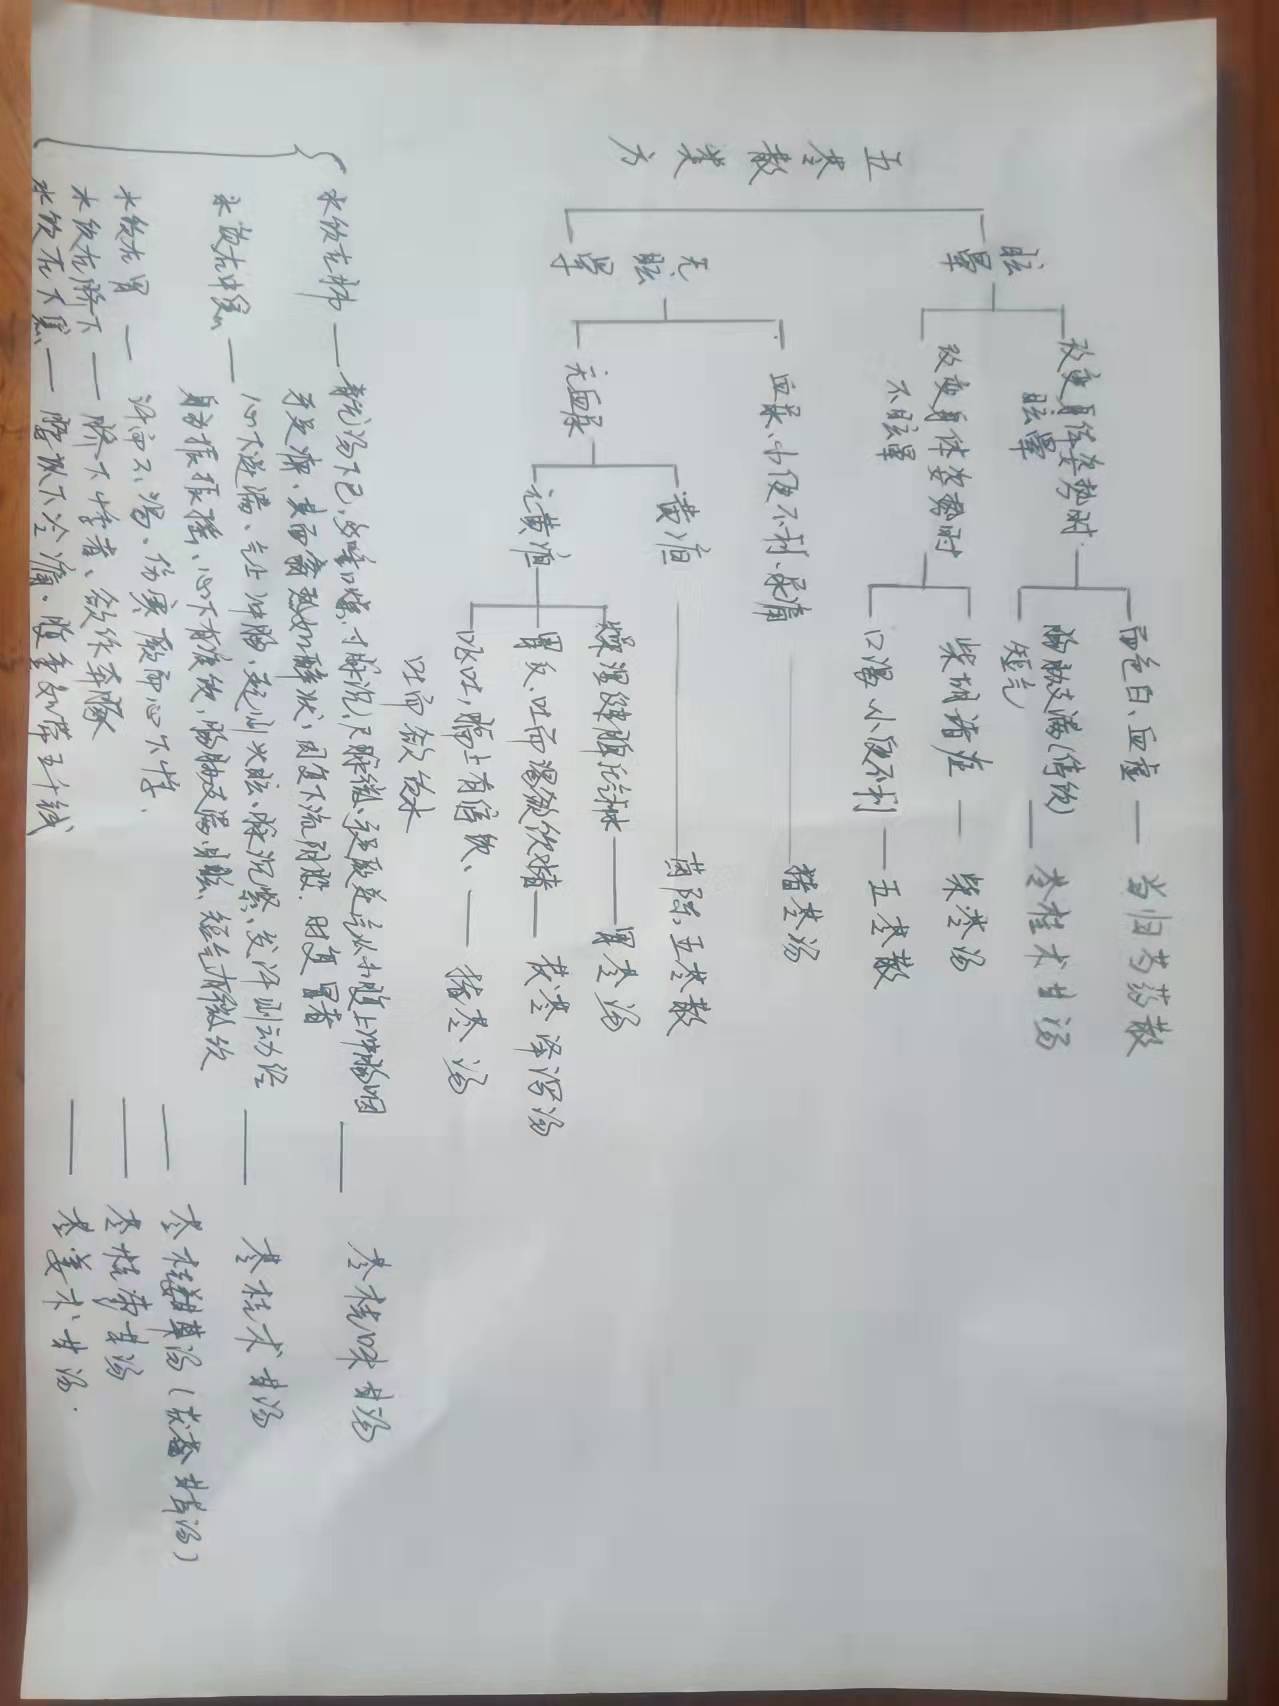 五苓散类方
眩晕
改变身体姿势时眩晕
面色白、血虚 — 当归芍药散
胸胁支满(停饮)
短气
— 苓桂术甘汤
改变身体姿势时
不眩晕
柴胡诸症 — 柴苓汤
口渴、小便不利 — 五苓散
无眩晕
血尿、小便不利、尿痛 — 猪苓汤
无血尿
黄疸 — 茵陈五苓散
无黄疸
— 胃苓汤
胃反、吐而渴欲饮水者 — 茯苓泽泻汤
呕吐,膈上有停饮、 — 猪苓汤
吐而欲饮水
水饮在肺 — 青龙汤下已,多唾口燥、寸脉沉,尺脉微、手足厥逆气从小腹上冲胸咽
手足痹、其面翕热如醉状,因复下流阴股、时复冒者 — 苓桂味甘汤
水饮在中焦 — 心下逆满、气上冲胸、起则头眩、脉沉紧、发汗则动经
身为振振摇、心下有痰饮,胸胁支满、目眩、短气有微饮 — 苓桂术甘汤
水饮在胃 — 汗而不渴、伤寒厥而心下悸、 — 苓桂姜甘汤(茯苓甘草汤)
水饮在脐下 — 脐下悸者、欲作奔豚 — 苓桂枣甘汤
水饮在下焦 — 腰以下冷痛、腹重如带五千钱 — 苓姜术甘汤.